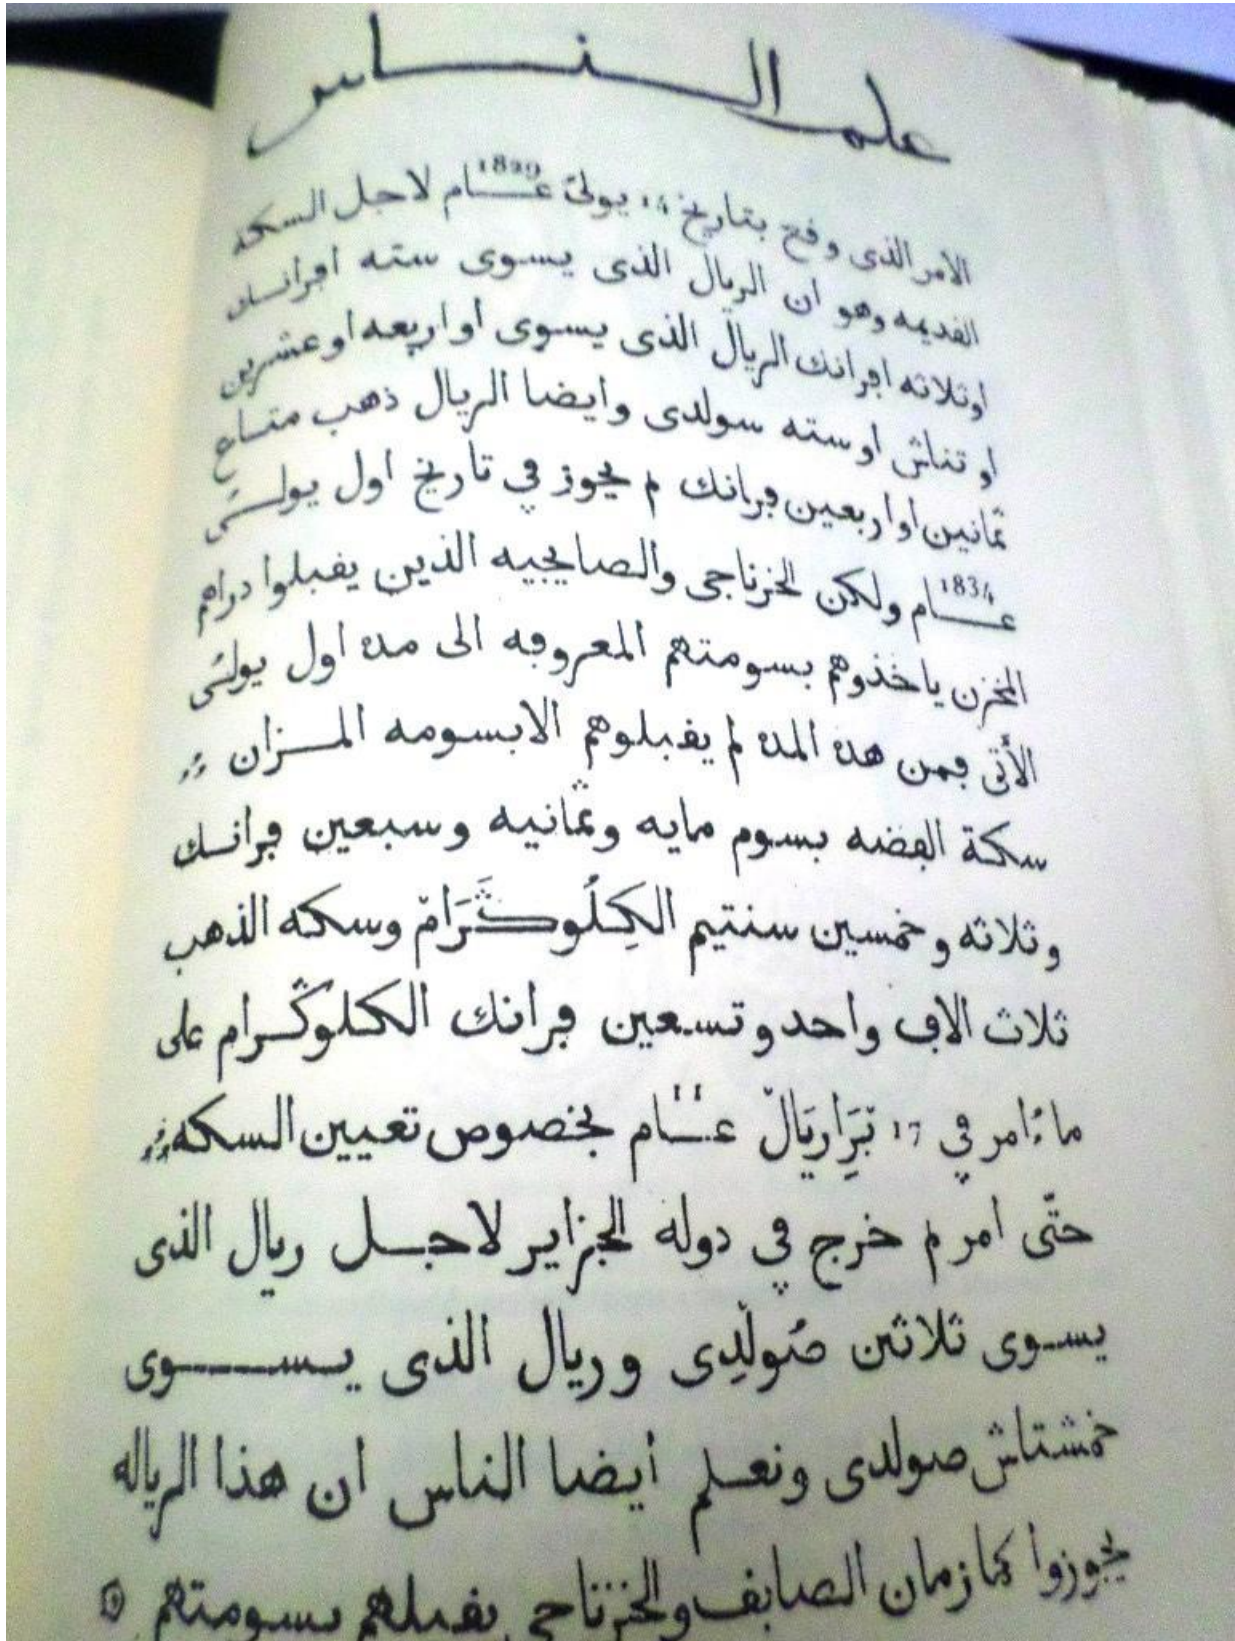 علم الناس
الامر الذى وفع بتاريخ 14 يولى عام 1829 لاجل السكه
القديمه وهو ان الريال الذى يسوى سته افرانك
اوثلاثه افرانك الريال الذى يسوى اواربعه اوعشرين
او تناش اوسته سولدى وايضا الريال ذهب متاع
ثمانين اواربعين فرانك لم يجوز في تاريخ اول يولى
عام 1834 ولكن الخزناجى والصايجيه الذين يفبلوا دراهم
المخزن ياخذوهم بسومتهم المعروفه الى مده اول يولى
الأتى فمن هده المده لم يفبلوهم الابسومه المزان
سكة الفضه بسوم مايه وثمانيه وسبعين فرانك
وثلاثه وخمسين سنتيم الكِلُوڭرَام وسكه الذهب
ثلاث الاف واحد وتسعين فرانك الكلوڭرام على
ماءامر في 17 بَرَارِيَالْ عام 11 بخصوص تعيين السكه
حتّى امر لم خرج في دوله الجزاير لاجل ريال الذى
يسوى ثلاثين صُولْدِى وريال الذى يسوى
خمشتاش صولدى ونعلم أيضا الناس ان هذا الرياله
يجوزوا كمازمان الصابف والخزناجى يفبلهم بسومتهم